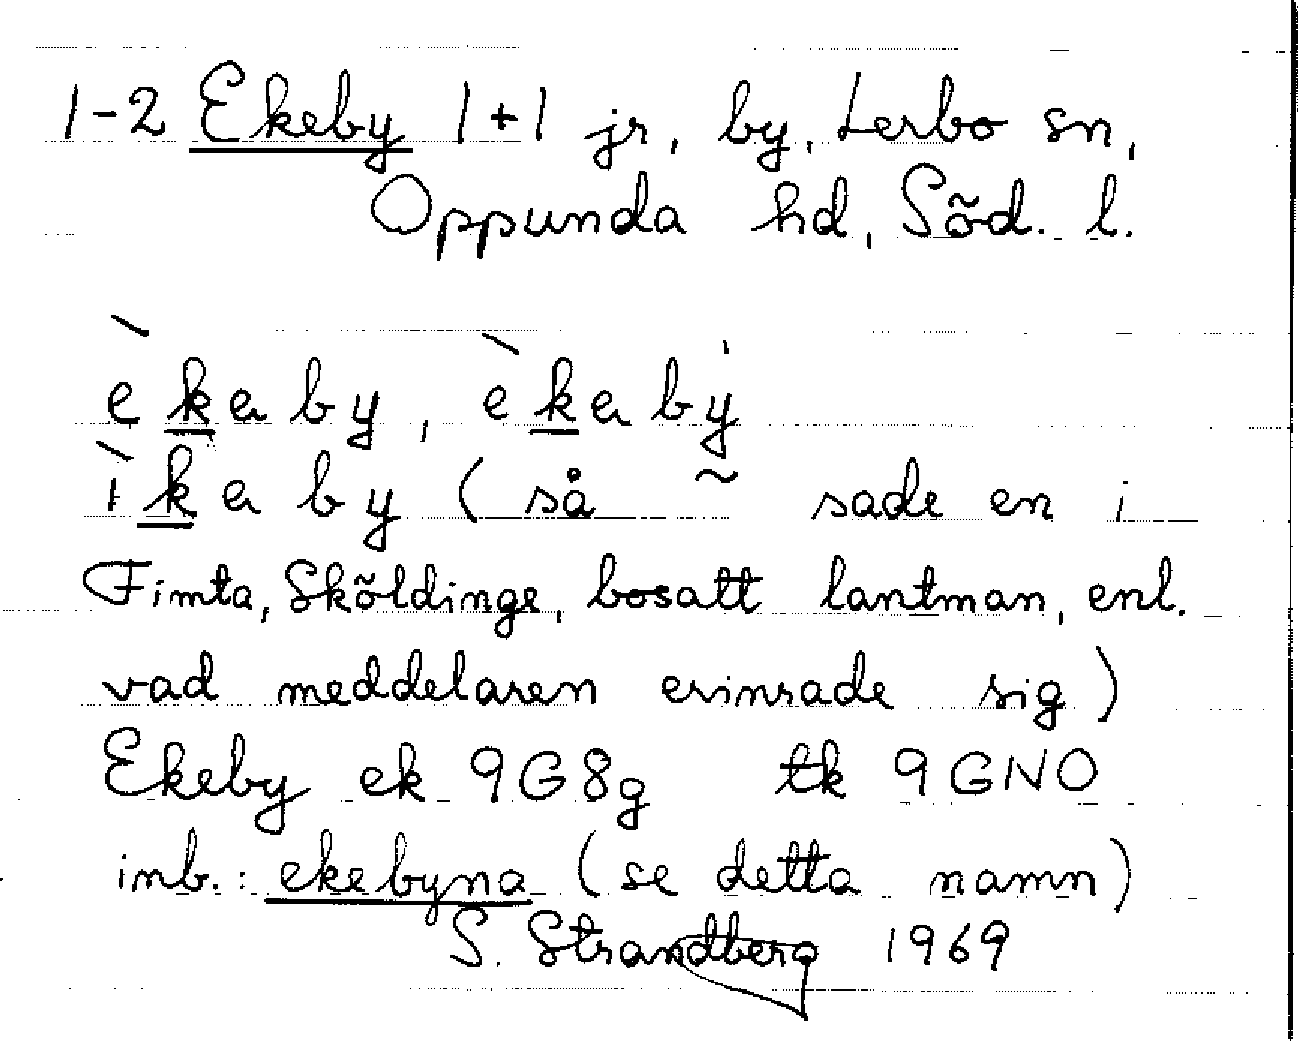 1-2 Ekeby 1+1 jr, by, Lerbo sn,
Oppunda hd, Söd. l.
èkeby, èkeby
ìkeby (så ~ sade en i
Fimta, Sköldinge, bosatt lantman, enl.
vad meddelaren erinrade sig)
Ekeby ek 9G8g tk 9GNO
inb.: ekebyna (se detta namn)
S. Strandberg 1969